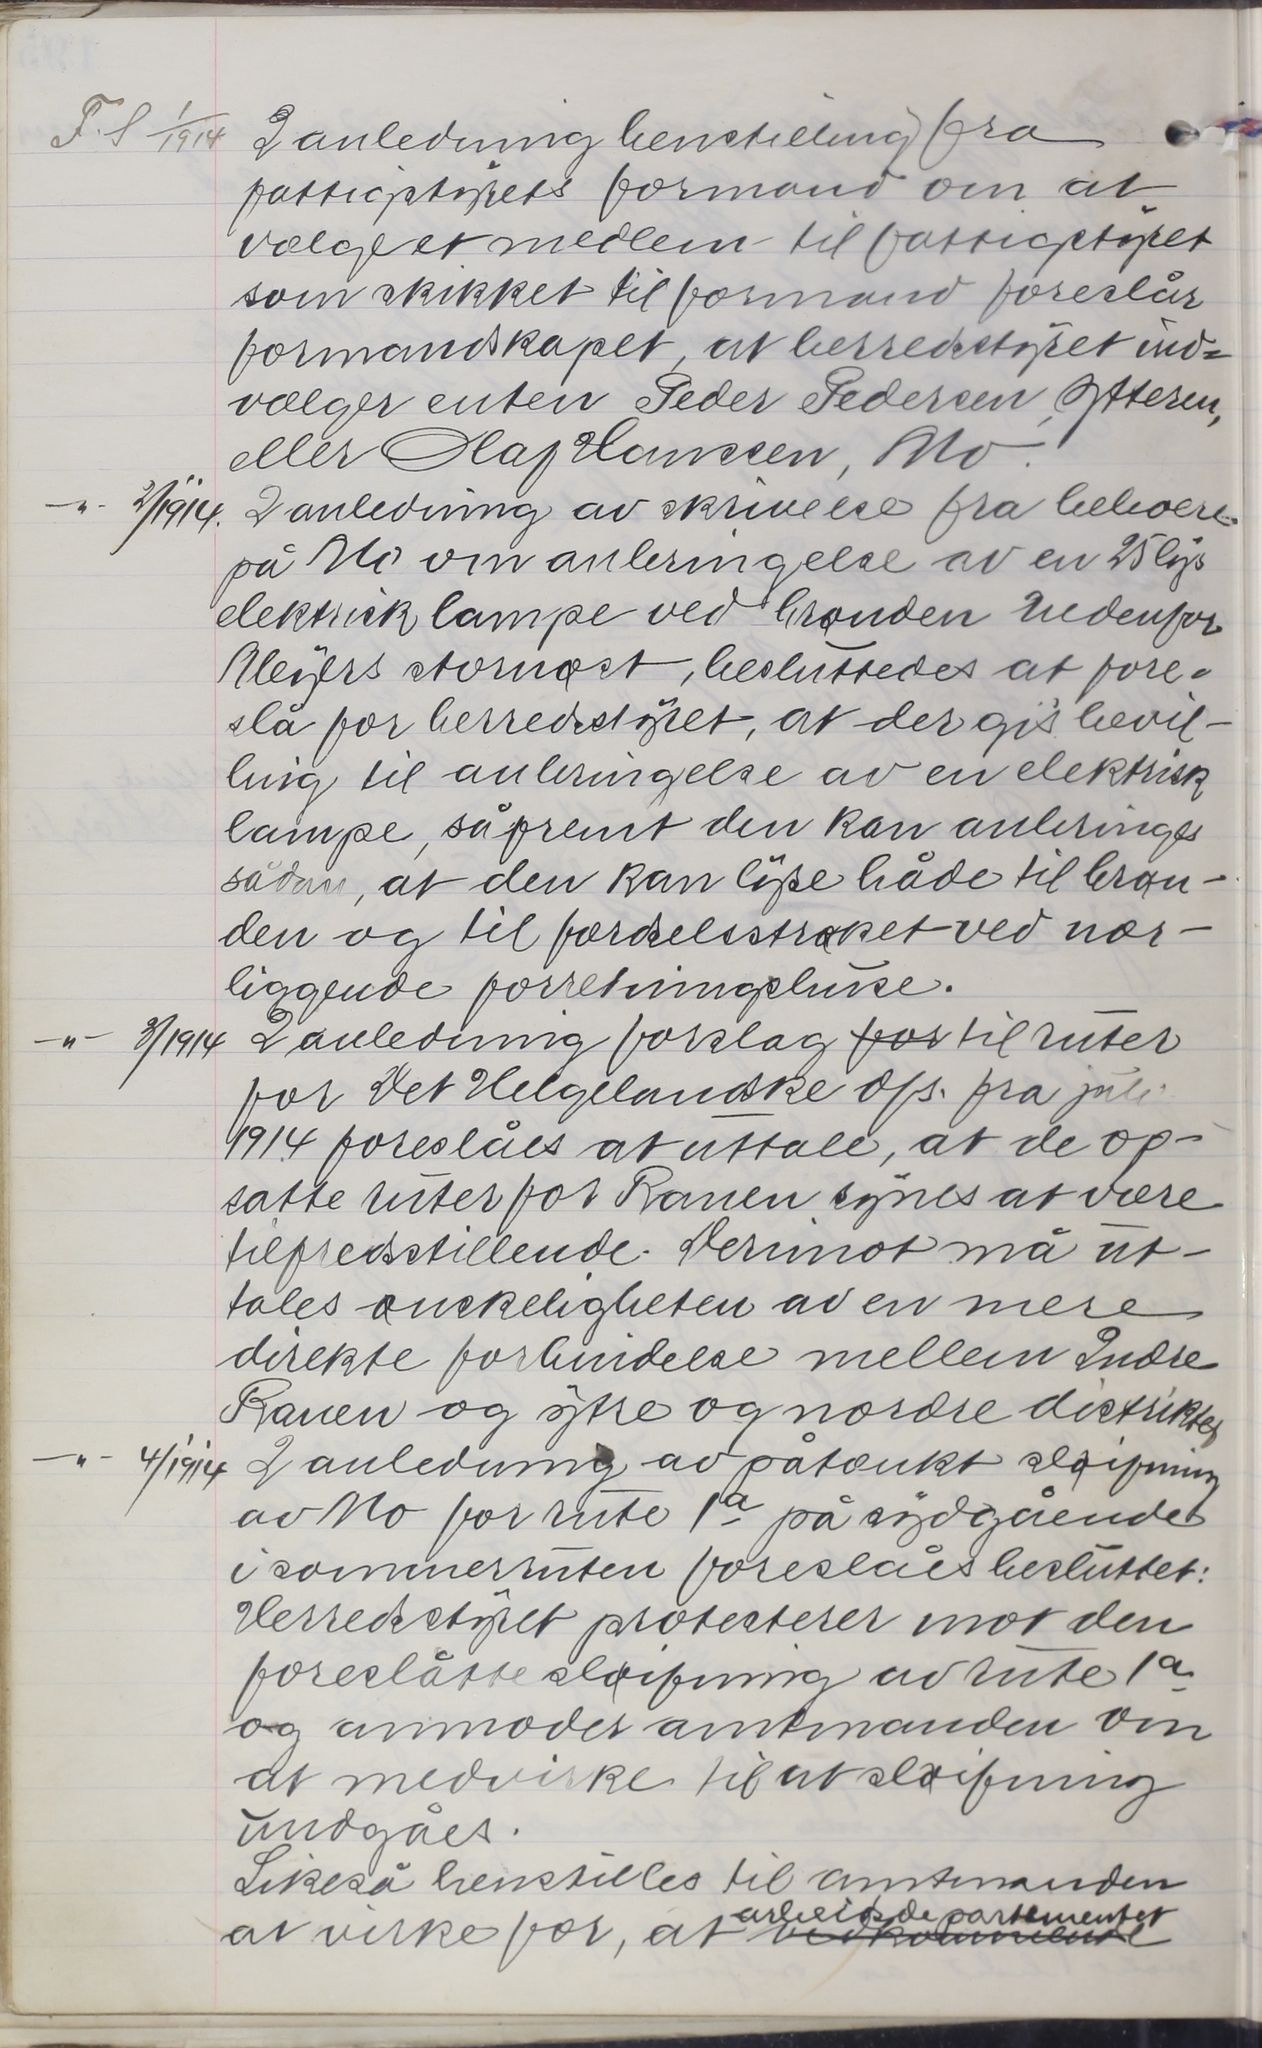 F. S 1/1914 I anledning henstilling fra
fattigstyrets formand om at
vælge et medlem til fattigstyret
som skikket til formand foreslår
formandskapet, at herredsstyret ind=
vælger enten Peder Pedersen, Ytteren,
eller Olaf Hanssen, Mo.
-"- 2/1914. I anledning av skrivelse fra beboere
på Mo om anbringelse av en 25 lys
elektrisk lampe ved brønden nedenfor
Meyers stornøst, besluttedes at fore-
slå for herredsstyret, at der gis bevil-
ling til anbringelse av en elektrisk
lampe, såfremt den kan anbringes
sådan, at den kan lyse både til brøn-
den og til færdselsstrøket ved nær-
liggende forretningshuse.
-"- 3/1914 I anledning forslag for til ruter
for Det Helgelandske D/s. fra juli
1914 foreslåes at uttale, at de op-
satte ruter for Ranen synes at være
tilfredsstillende. Derimot må ut-
tales ønskeligheten av en mere
direkte forbindelse mellem Indre
Ranen og ytre og nordre distrikter
-"- 4/1914 I anledning av påtænkt sløifning
av Mo for rute 1a på sydgående
i sommerruten foreslåes besluttet:
Herredsstyret protesterer mot den
foreslåtte sløifning av rute 1a
og anmoder amtmanden om
at medvirke til at sløifning
undgåes.
Likeså henstilles til amtmanden
arbeidsdepartementet
at virke for, at vedkommende